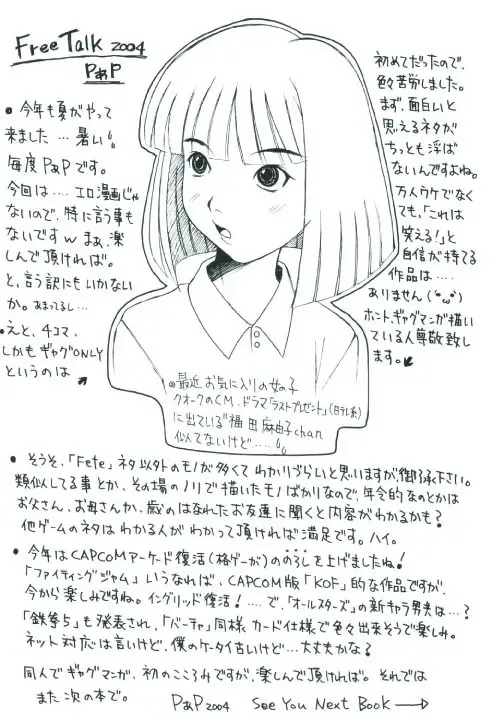 Free Talk 2004
PあP
● 今年も夏がやって
来ました … 暑い
毎度PあPです。
今回は…. エロ漫画じゃ
ないので、特に言う事も
ないですw まぁ、楽
しんで頂ければ。
と、言う訳にもいかない
か。あまってるし…
●えと、4コマ、
しかもギャグONLY
というのは
初めてだったので、
色々苦労しました。
まず、面白いと
思えるネタが
ちっとも浮ば
ないんですよね。
万人ウケでなく
ても、「これは
笑える!」と
自信が持てる
作品は….
ありません(´・ω・`)
ホント、ギャグマンガ描い
ている人尊敬致し
ます。
◎最近お気に入りの女の子
クオークのCM、ドラマ「ラストプレゼント」(日テレ系)
に出ている"福田麻由子chan
似てないけど…..
● そうそ、「Fete」ネタ以外のモノが多くてわかりづらいと思いますが、御了承下さい。
類似してる事とか、その場のノリで描いたモノばかりなので、年令的なのとかは
お父さん、お母さんか、歳のはなれたお友達に聞くと内容がわかるかも?
他ゲームのネタはわかる人がわかって頂ければ満足です。ハイ。
● 今年はCAPCOMアーケード復活(格ゲーが)ののろしを上げましたね!
「ファイティングジャム」いうなれば、CAPCOM版「KOF」的な作品ですが、
今から楽しみですね。イングリッド復活!….で、「オールスターズ」の新キャラ男夫は…?
「鉄拳5」も発表され、「バーチャ」同様カード仕様で色々出来そうで楽しみ。
ネット対応は言いけど、僕のケータイ古いけど…大丈夫かな?
同人でギャグマンガ、初のこころみですが、楽しんで頂ければ。それでは
また次の本で。 PあP 2004 See You Next Book →